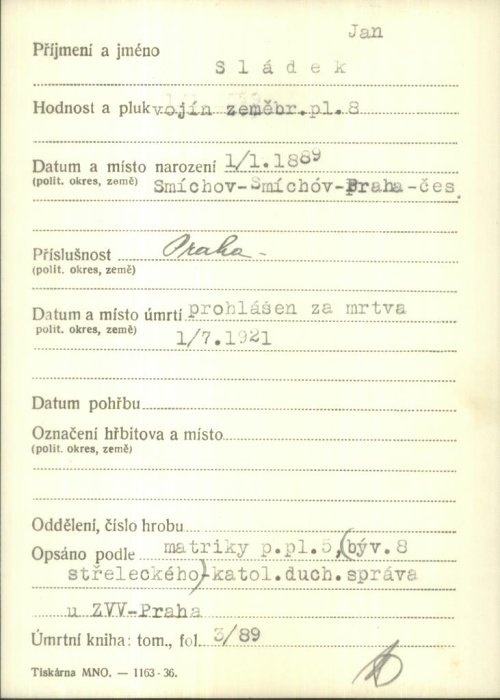 Jan
Příjmení a jméno
Sládek
Hodnost a pluk vojín zeměbr.pl.8
Datum a místo narození 1/1.1889
(polit. okres, země) Smíchov-Smíchóv-Praha-čes.
Příslušnost Praha-
(polit. okres, země)
Datum a místo úmrtí prohlášen za mrtva
polit. okres, země) 1/7.1921
Datum pohřbu
Označení hřbitova a místo
(polit. okres, země)
Oddělení, číslo hrobu
Opsáno podle matriky p.pl.5,(býv.8
střeleckého)-katol.duch.správa
u ZVV-Praha
Úmrtní kniha: tom., fol. 3/89
Tiskárna MNO. — 1163-36.